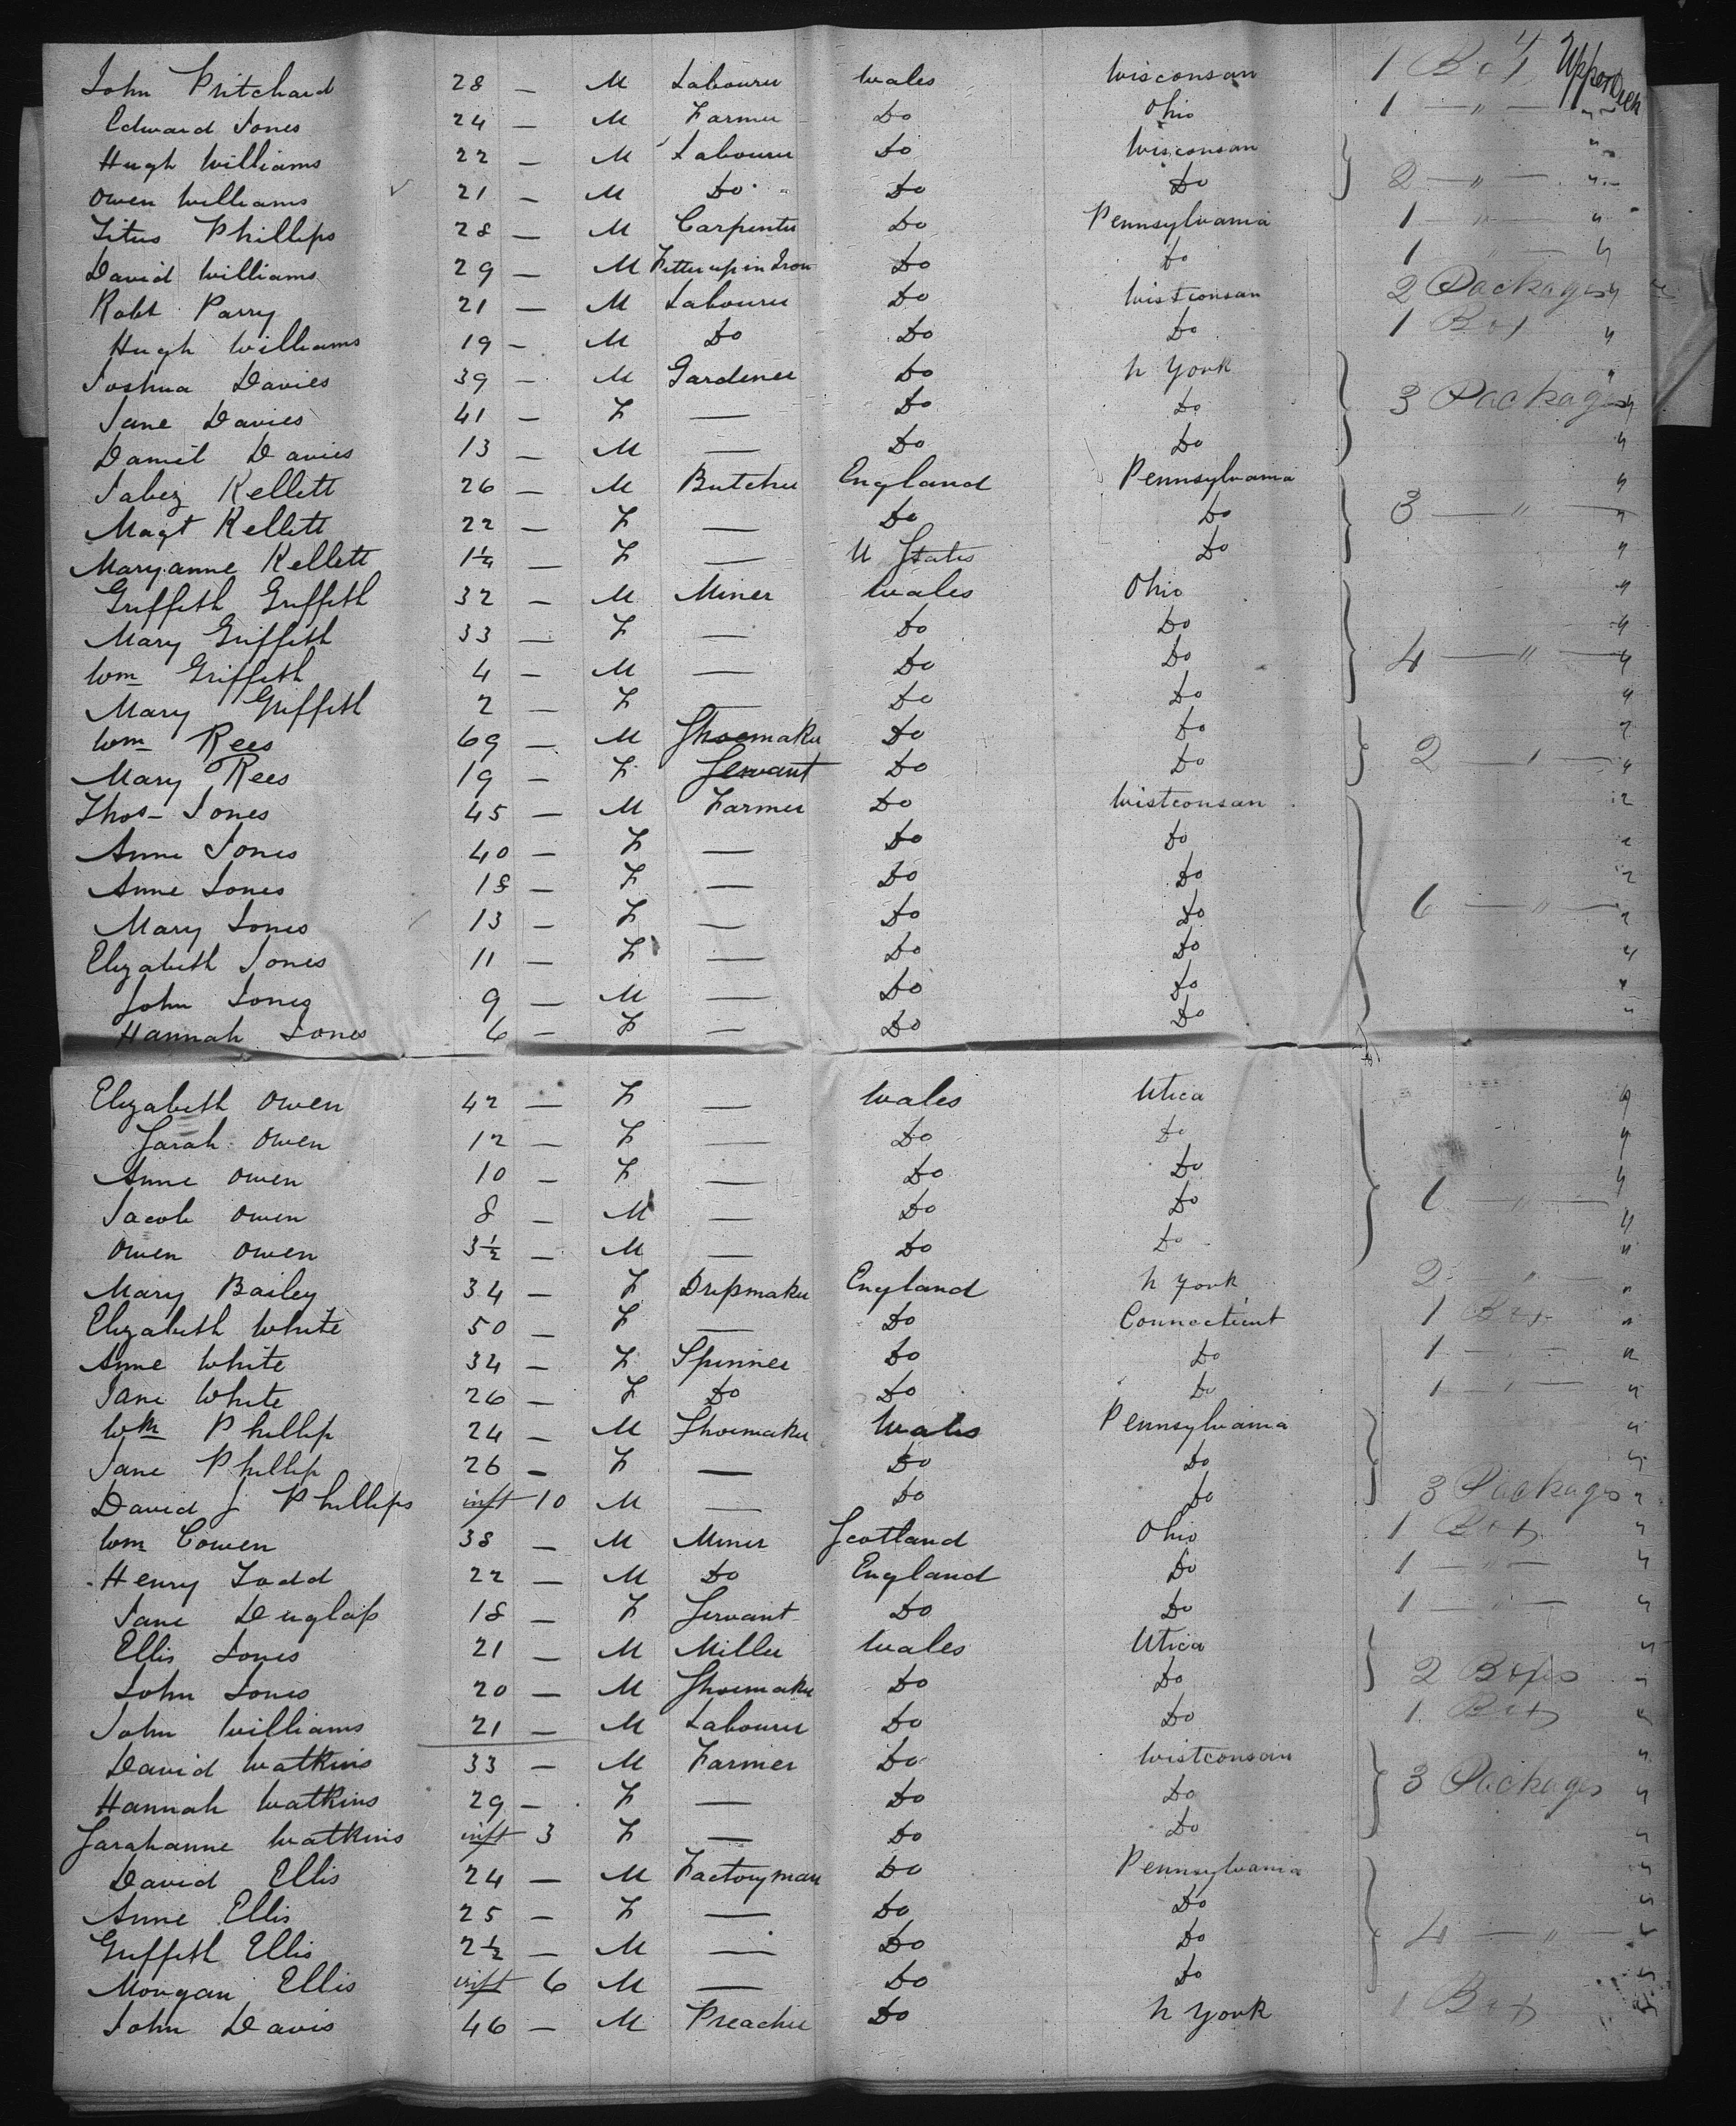 John Pritchard 28 — M Labourer Wales Wisconsan 1 Box Upper Deck
Edward Jones 24 — M Farmer Do Ohio 1 — " — "
Hugh Williams 22 — M Labourer Do Wisconsan "
Owen Williams 21 — M Do Do Do 2 — " — "
Titus Phillips 28 — M Carpenter Do Pennsylvania 1 — " — "
David Williams 29 — M Fitter up in Iron Do Do 1 — " — "
Robt Parry 21 — M Labourer Do Wistconsan 2 Packages "
Hugh Williams 19 — M Do Do Do 1 Box "
Joshua Davies 39 — M Gardener Do N York "
Jane Davies 41 — F — Do Do 3 Packages "
Daniel Davies 13 — M — Do Do "
Jabez Kellett 26 — M Butcher England Pennsylvania "
Magt Kellett 22 — F — Do Do 3 — " — "
Maryanne Kellett — F — U States Do "
Griffith Griffith 32 — M Miner Wales Ohio "
Mary Griffith 33 — F — Do Do "
Wm Griffith 4 — M — Do Do 4 — " — "
Mary Griffith 2 — F — Do Do "
Wm Rees 69 — M Shoemaker Do Do "
Mary Rees 19 — F Servant Do Do 2 — " — "
Thos Jones 45 — M Farmer Do Wistconsan "
Anne Jones 40 — F — Do Do "
Anne Jones 18 — F — Do Do "
Mary Jones 13 — F — Do Do 6 — " — "
Elizabeth Jones 11 — F — Do Do "
John Jones 9 — M — Do Do "
Hannah Jones 6 — F — Do Do "
Elizabeth Owen 42 — F — Wales Utica "
Sarah Owen 12 — F — Do Do "
Anne Owen 10 — F — Do Do "
Jacob Owen 8 — M — Do Do — " — "
Owen Owen 3½ — M — Do Do "
Mary Bailey 34 — F Dressmaker England N York 2 — " — "
Elizabeth White 50 — F — Do Connecticut 1 Box "
Anne White 34 — F Spinner Do Do 1 — " — "
Jane White 26 — F Do Do Do 1 — " — "
Wm Phillip 24 — M Shoemaker Wales Pennsylvania "
Jane Phillip 26 — F — Do Do "
David J Phillips inft 10 M — Do Do 3 Packages "
Wm Cowen 38 — M Miner Scotland Ohio 1 Box "
Henry Todd 22 — M Do England Do 1 — " — "
Jane Duglass 18 — F Servant Do Do 1 — " — "
Ellis Jones 21 — M Miller Wales Utica "
John Jones 20 — M Shoemaker Do Do 2 Boxes "
John Williams 21 — M Labourer Do Do 1 Box "
David Watkins 33 — M Farmer Do Wistconsan "
Hannah Watkins 29 — F — Do Do 3 Packages "
Sarahanne Watkins inft 3 F — Do Do "
David Ellis 24 — M Factoryman Do Pennsylvania "
Anne Ellis 25 — F — Do Do "
Griffith Ellis 2½ — M — Do Do 4 — " — "
Morgan Ellis inft 6 M — Do Do "
John Davis 46 — M Preacher Do N York 1 Box